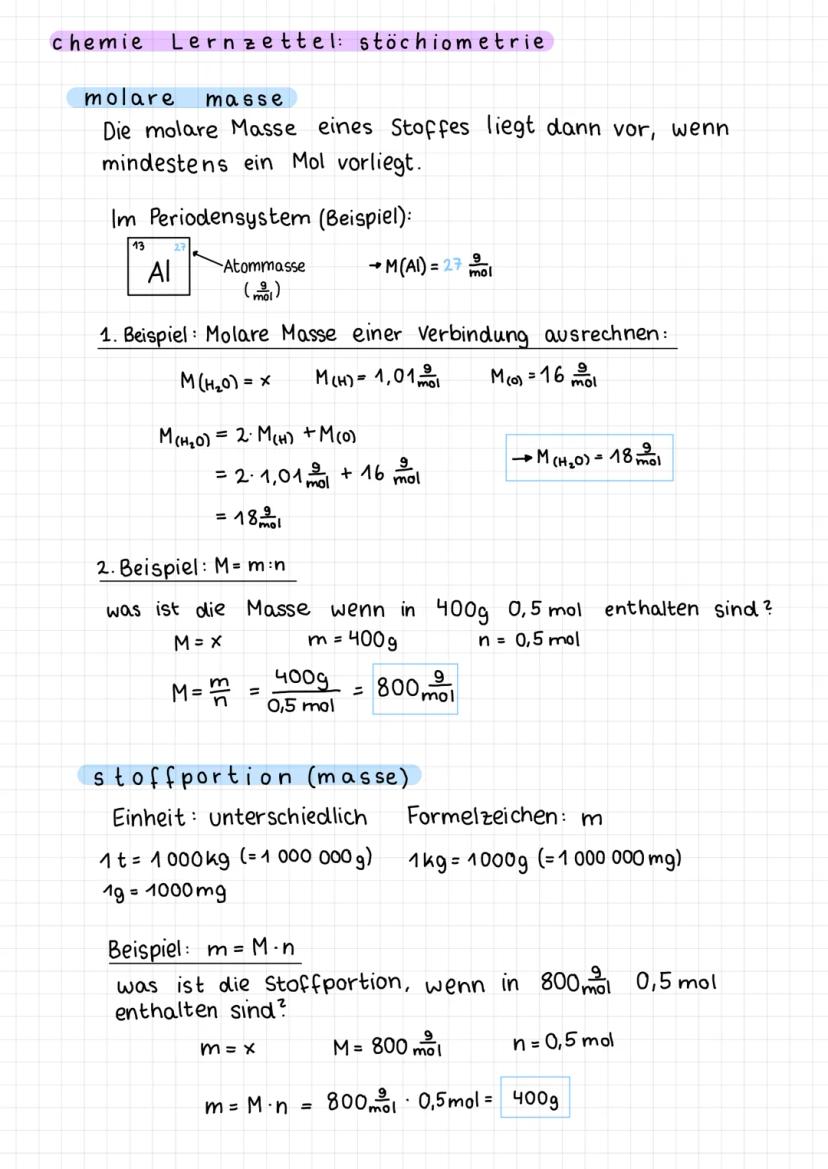 chemie Lernzettel: stöchiometrie
molare masse
Die molare Masse eines Stoffes liegt dann vor, wenn
mindestens ein Mol vorliegt.
Im Periodensystem (Beispiel):
13 27
Al
Atommasse
(g/mol)
→ M(Al) = 27 g/mol
1. Beispiel: Molare Masse einer Verbindung ausrechnen:
M(H₂O) = x M(H) = 1,01 g/mol M(O) = 16 g/mol
M(H₂O) = 2 · M(H) + M(O)
= 2 · 1,01 g/mol + 16 g/mol
→ M(H₂O) = 18 g/mol
= 18 g/mol
2. Beispiel: M = m:n
was ist die Masse wenn in 400g 0,5 mol enthalten sind?
M = x m = 400g n = 0,5 mol
M = m/n = 400g/0,5 mol = 800 g/mol
stoffportion (masse)
Einheit: unterschiedlich Formelzeichen: m
1 t = 1 000 kg (= 1 000 000 g) 1 kg = 1000g (= 1 000 000 mg)
1g = 1000 mg
Beispiel: m = M · n
was ist die Stoffportion, wenn in 800 g/mol 0,5 mol
enthalten sind?
m = x M = 800 g/mol n = 0,5 mol
m = M · n = 800 g/mol · 0,5 mol = 400g